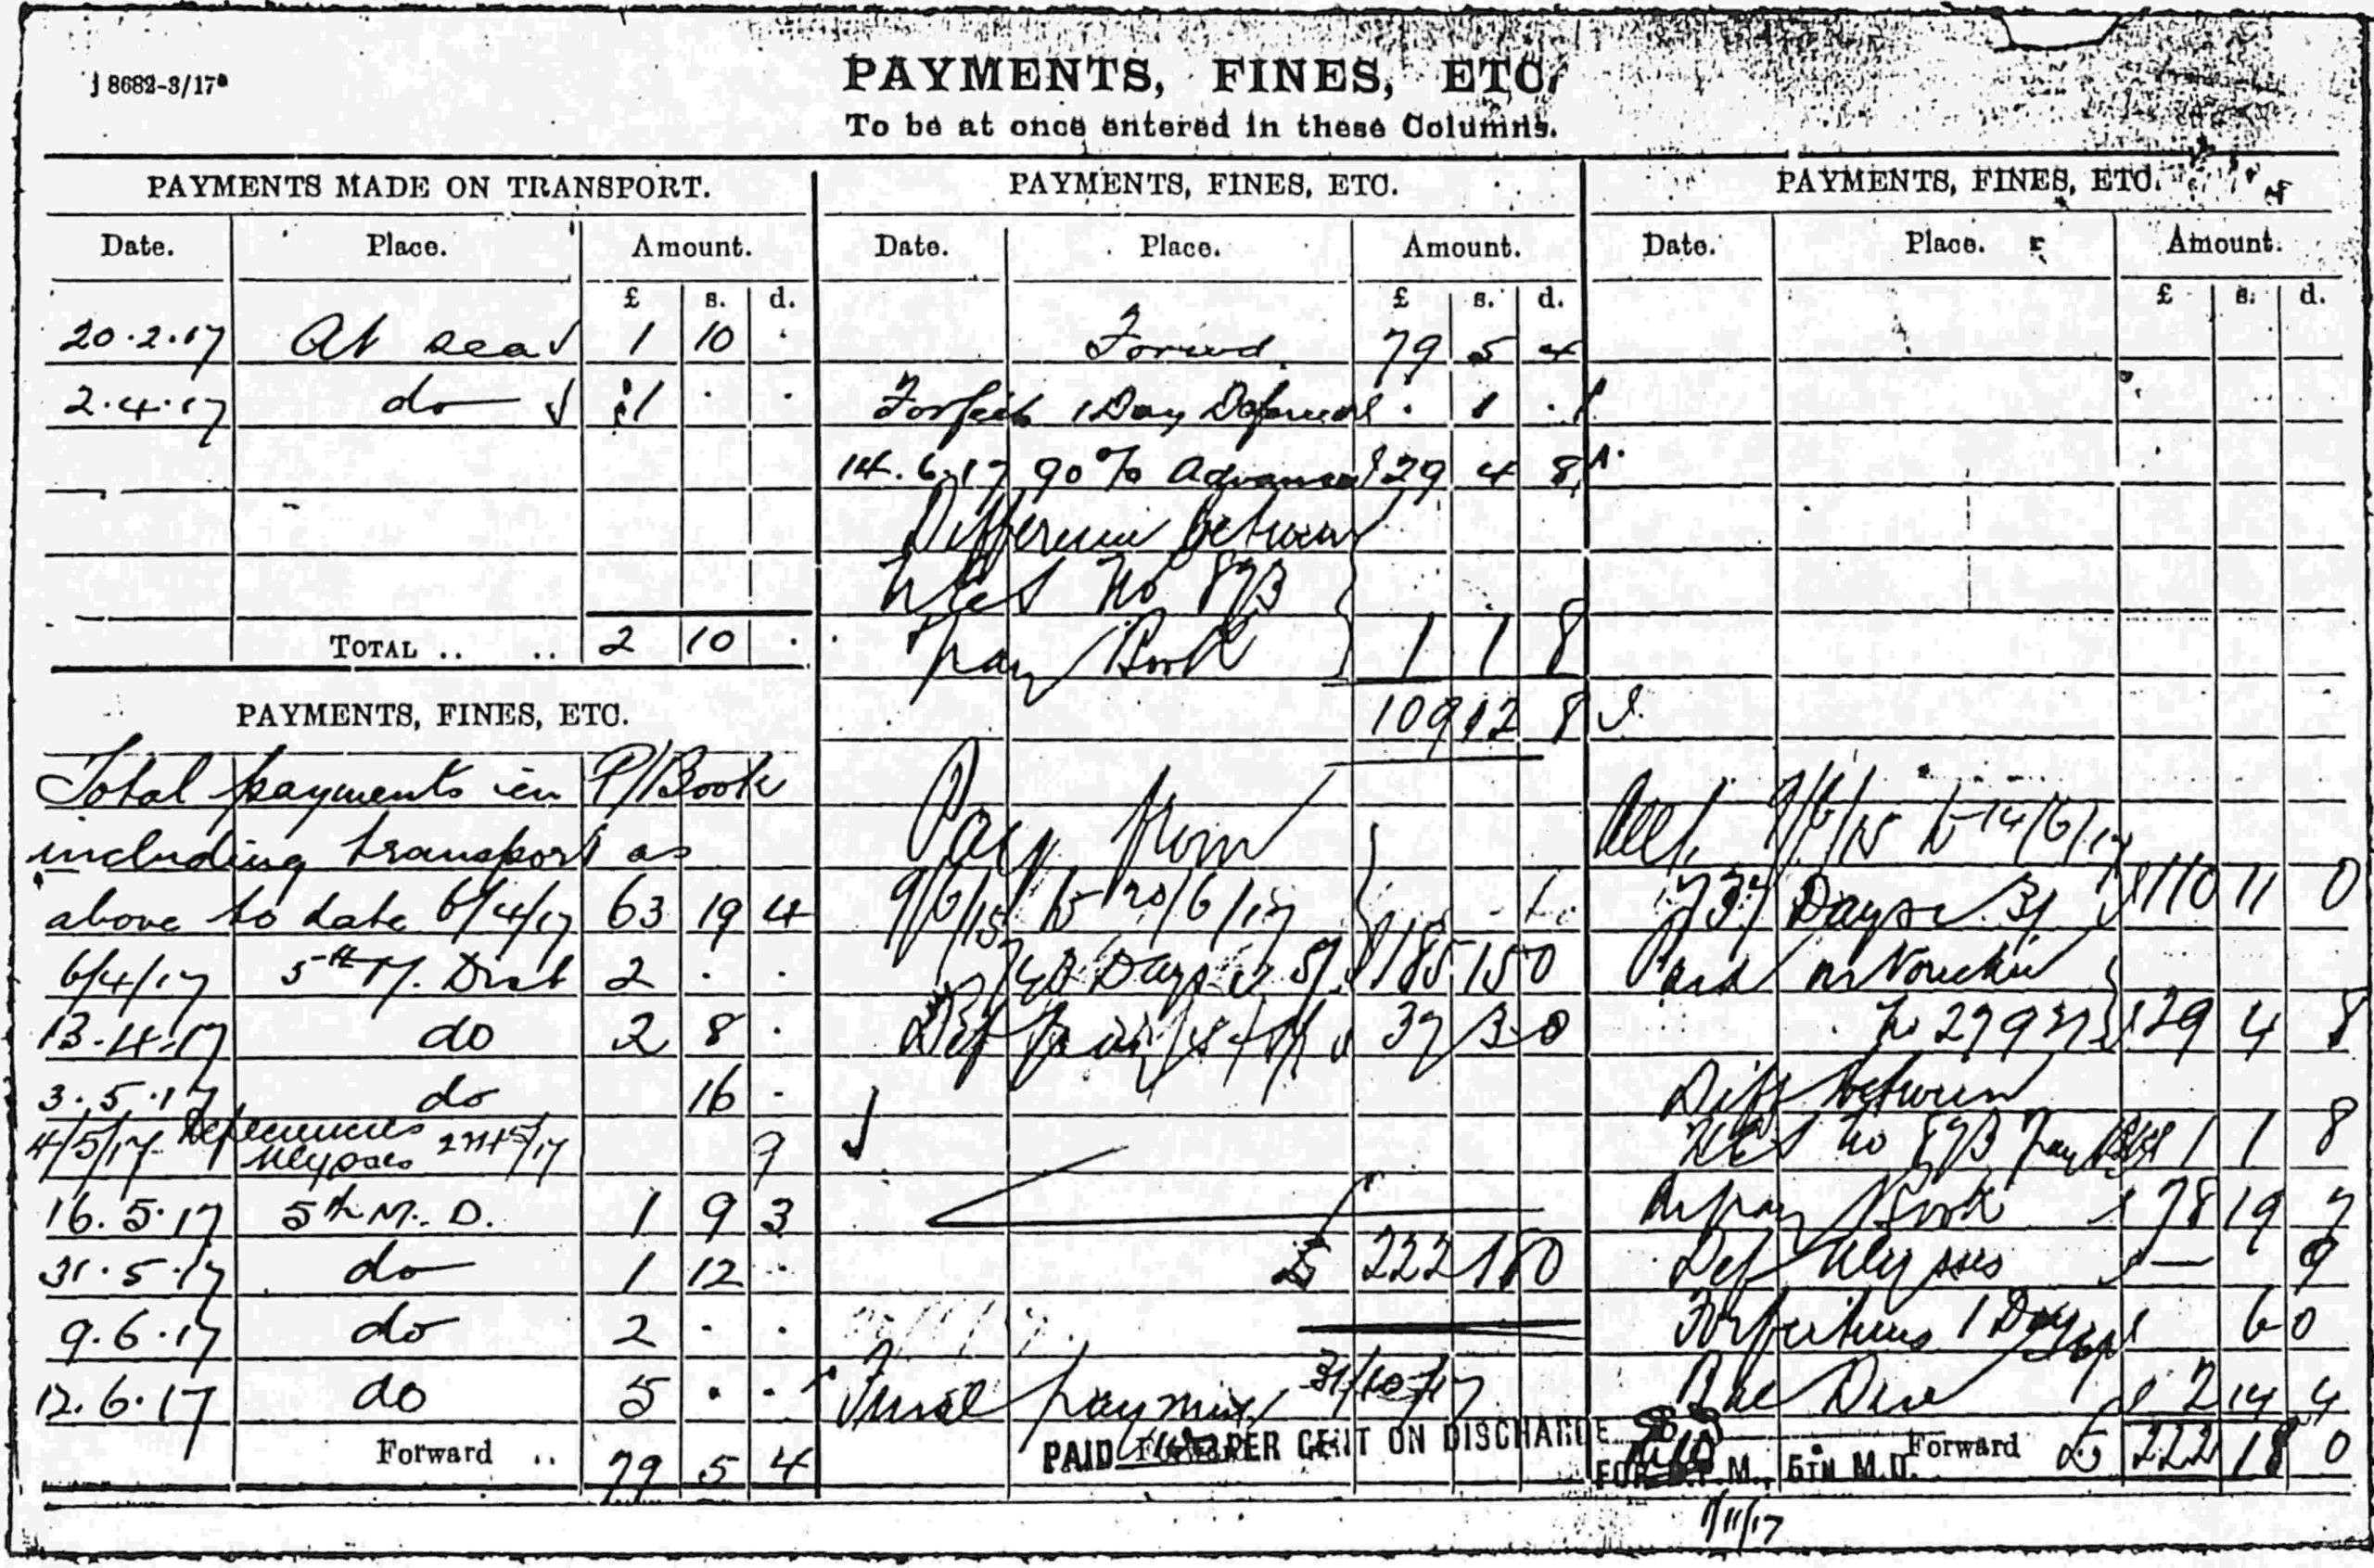 J 8682-3/17
PAYMENTS, FINES, ETC.
To be at once entered in these Columns.
PAYMENTS MADE ON TRANSPORT.
Date. Place. Amount.
£ s. d.
20.2.17 At sea 1 10 .
2.4.17 do 1 . .
TOTAL .. .. 2 10 .
PAYMENTS, FINES, ETC.
Total payments in P/Book
including transport as
above to date 6/4/17 63 19 4
6/4/17 5th M. Dist 2 . .
13.4.17 do 2 8 .
3.5.17 do 16 .
4/5/17 Deficiencies
Ulysses 9
16.5.17 5th M. D. 1 9 3
31.5.17 do 1 12 .
9.6.17 do 2 . .
12.6.17 do 5 . .
Forward .. 79 5 4
PAYMENTS, FINES, ETC.
Date. Place. Amount.
£ s. d.
Forwd 79 5 4
Forfeit 1 Day Deferred . 1 .
14.6.17 90% Advance 29 4 8
Difference between
No 873
Pay Book 1 1 8
109 12 8
Pay from
9/6/15 to 20/6/17
Days 5/ 185 15 0
Def 37 3 0
£ 222 18 0
Final payment 31/10/17
PAID PER CENT ON DISCHARGE
PAYMENTS, FINES, ETC.
Date. Place. Amount.
£ s. d.
All. 9/6/15 to 14/6/17
737 Days 3/ 110 11 0
Paid on Voucher
No 27937 29 4 8
Diff between
No 873 Pay Book 1 1 8
Pay Book 78 19 7
Def Ulysses — 9
1 Day 6 0
Bal Due 2 14 4
Forward £ 222 18 0
FOR D.P.M., 5TH M.D.
1/11/17